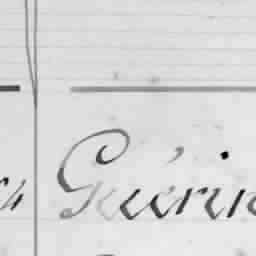 Guérin